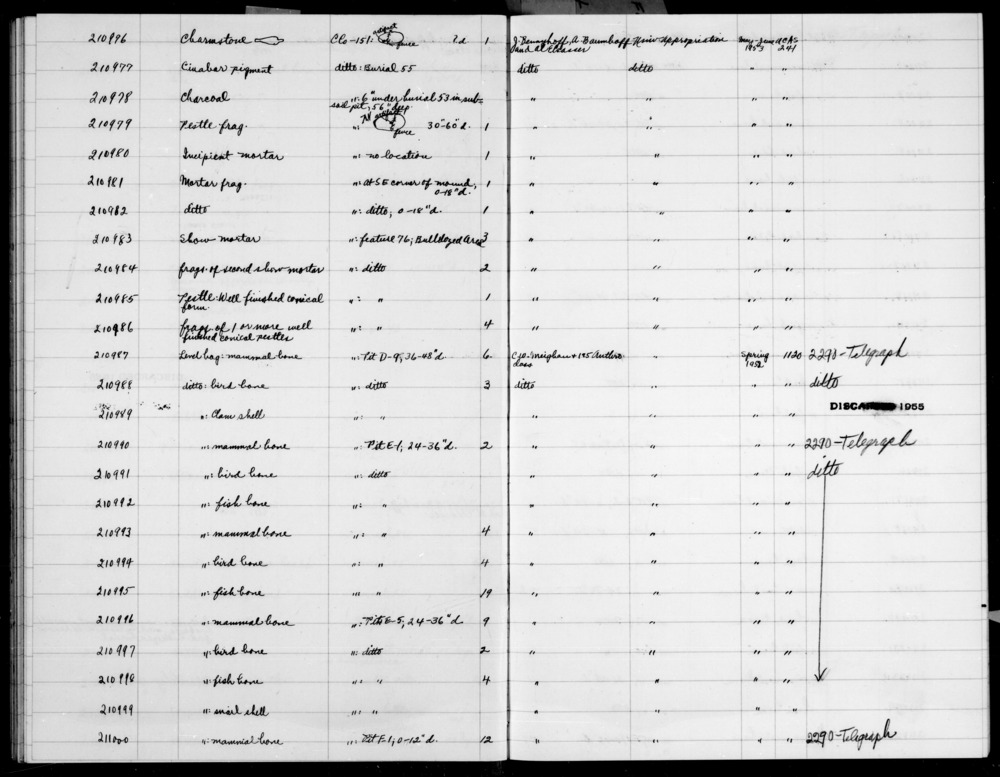 210976 Charmstone CCo-151: ?d 1 J. Bennyhoff, A. Baumhoff Univ. Appropriation May-June 1953 UCAS 241
and Al Elsasser
210977 Cinabar pigment ditto: Burial 55 ditto ditto " "
210978 Charcoal ": 6" under burial 53 in sub- " " " "
soil pit, 56" deep
210979 Pestle frag. ": 30"-60"d. 1 " " " "
210980 Incipient mortar ": no location 1 " " " "
210981 Mortar frag. ": at SE corner of mound, 1 " " " "
0-18"d.
210982 ditto ": ditto, 0-18"d. 1 " " " "
210983 Show mortar ": feature 76; Bulldozed Area 3 " " " "
210984 frags. of second show mortar ": ditto 2 " " " "
210985 Pestle: Well finished conical ": " 1 " " " "
form.
210986 frags. of 1 or more well ": " 4 " " " "
finished conical pestles
210987 Level bag: mammal bone ": Pit D-9, 36-48"d. 6 C.W. Meighan & 195 Anthro " Spring 1952 1120 2290-Telegraph
class
210988 ditto: bird bone ": ditto 3 ditto " " " ditto
210989 ": Clam shell ": " " " " " 1955
210990 ": mammal bone ": Pit E-1; 24-36"d. 2 " " " " 2290-Telegraph
210991 ": bird bone ": ditto " " " " ditto
210992 ": fish bone ": " " " " "
210993 ": mammal bone ": " 4 " " " "
210994 ": bird bone ": " 4 " " " "
210995 ": fish bone ": " 19 " " " "
210996 ": mammal bone ": Pit E-5; 24-36"d 9 " " " "
210997 ": bird bone ": ditto 2 " " " "
210998 ": fish bone ": " 4 " " " "
210999 ": snail shell ": " " " " "
211000 ": mammal bone ": Pit F-1; 0-12"d. 12 " " " 2290-Telegraph